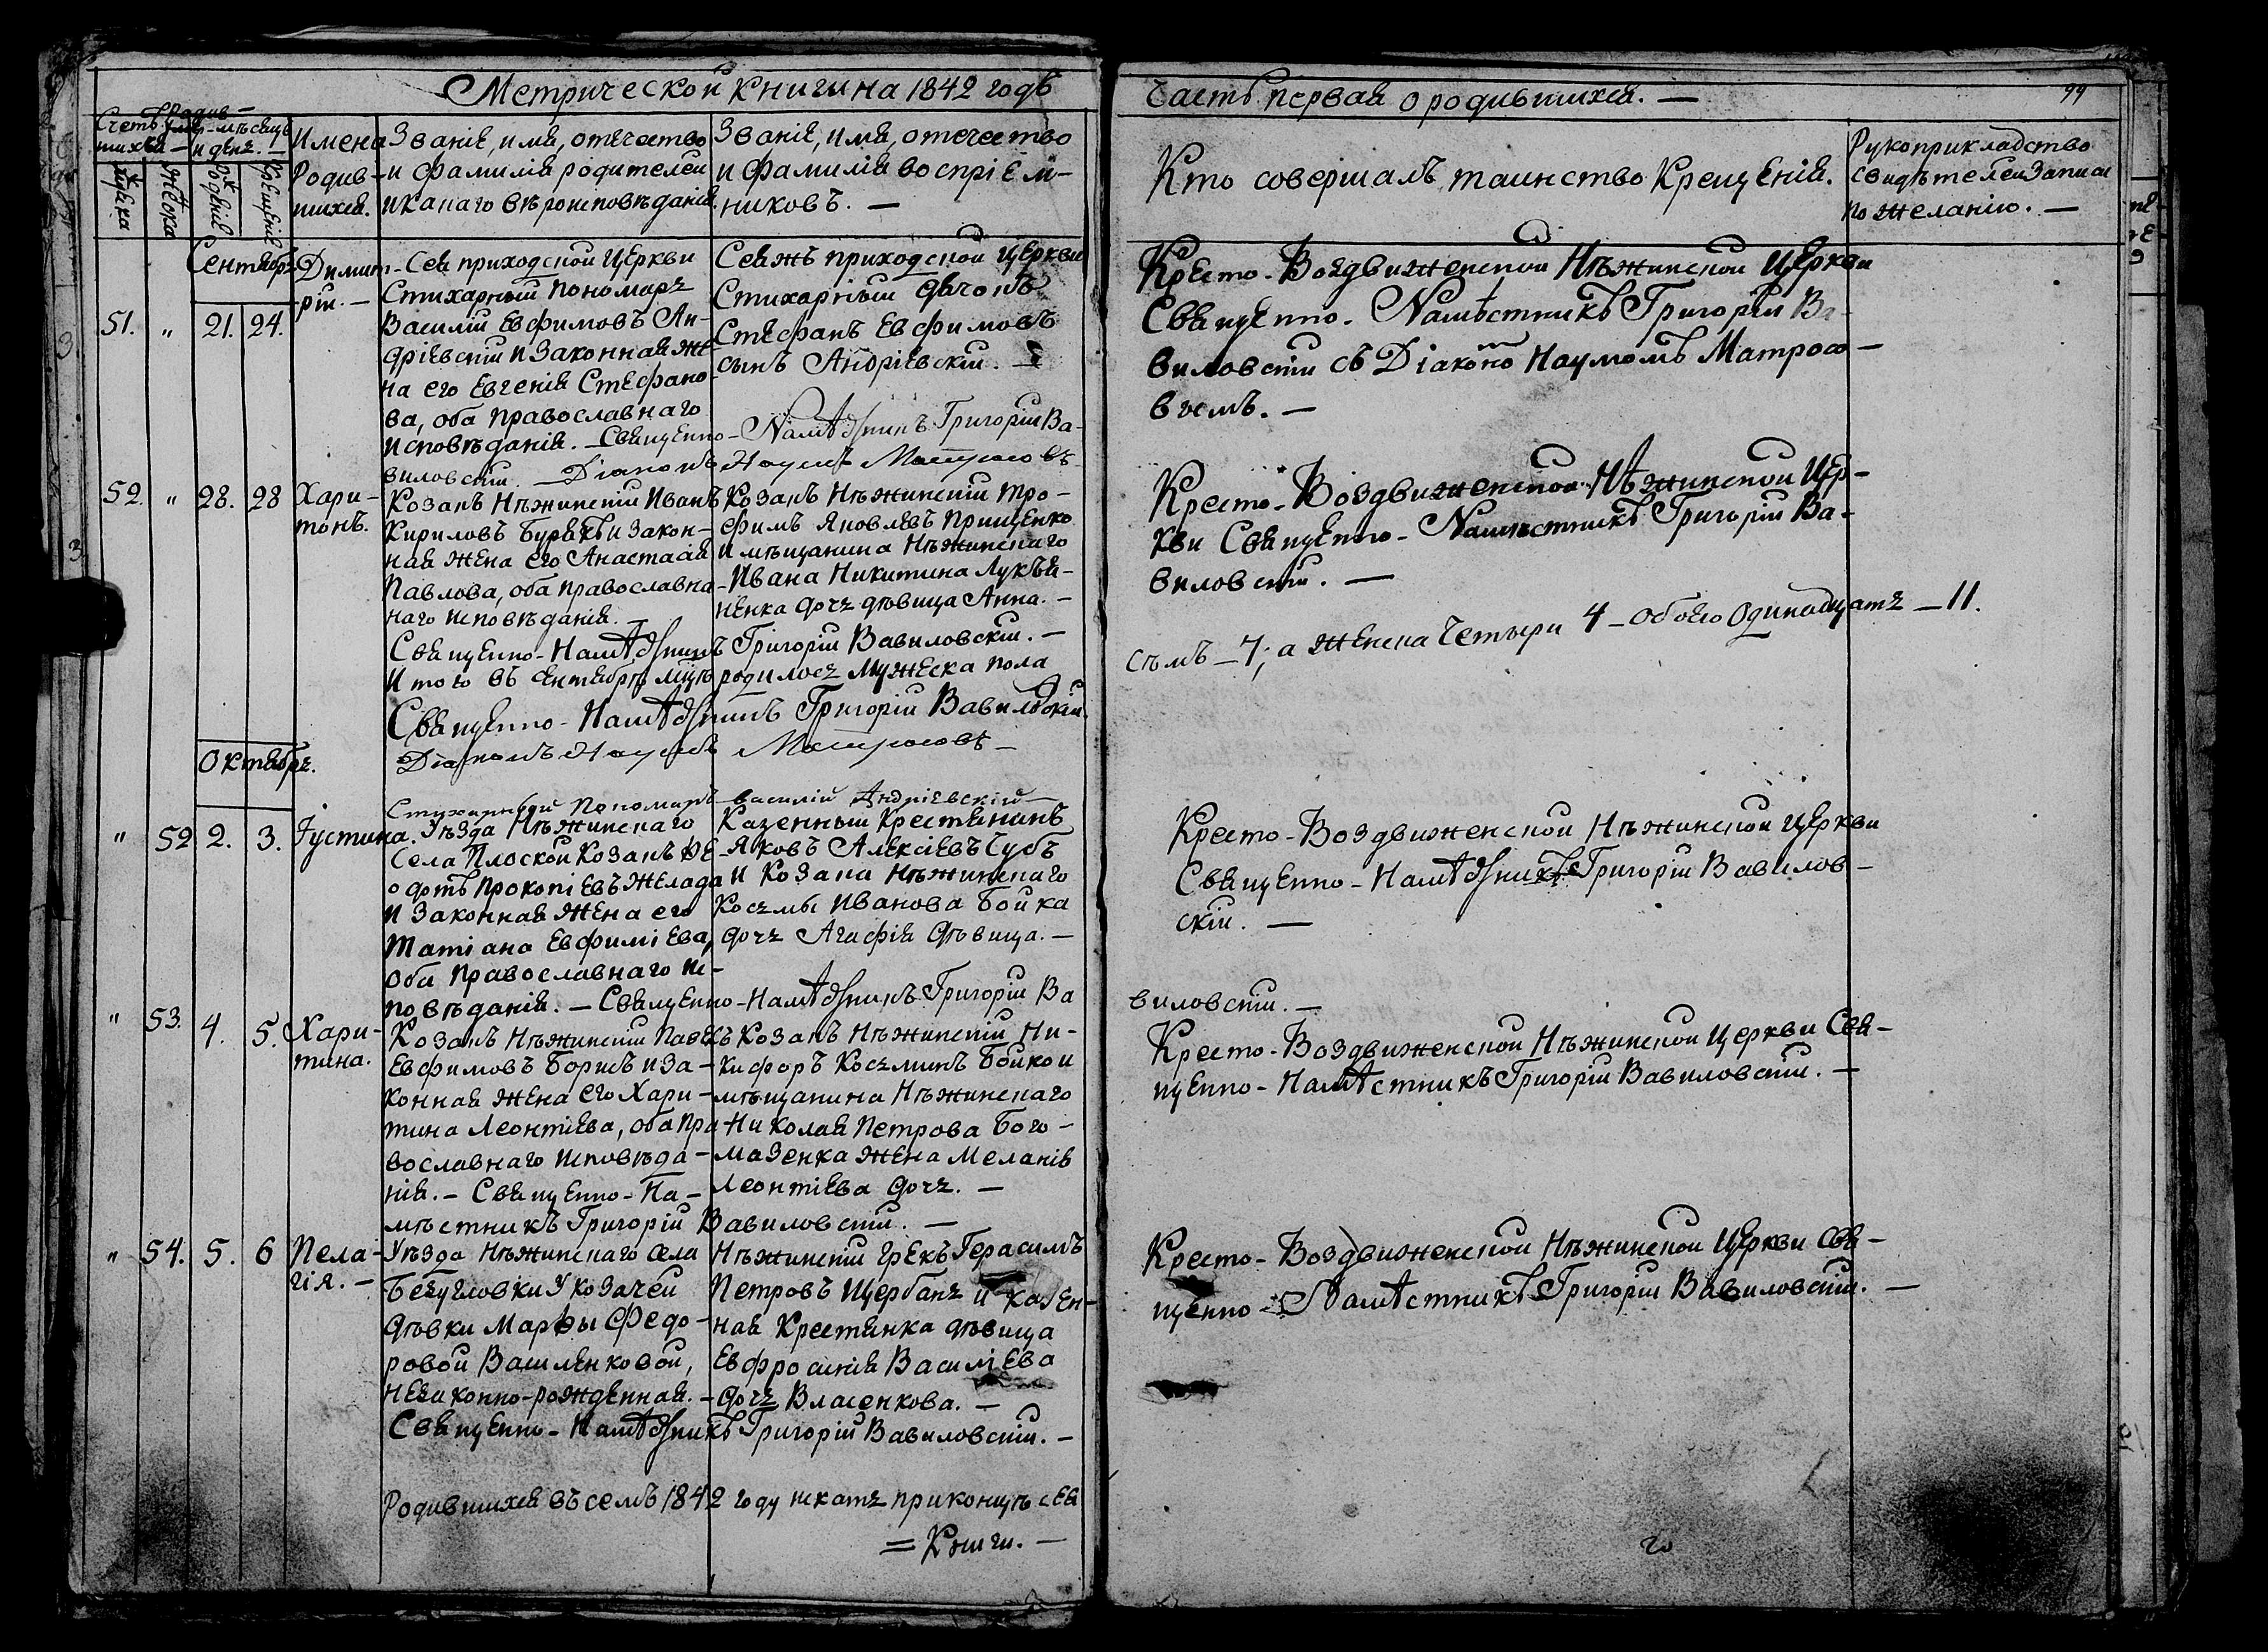 Метрической книги на 1842 годъ
Счетъ Родив-
шихся
мѣсяцъ
и день.
мужеска
женска
рожденіе
крещеніе
Имена
Родив-
шихся.
Званіе, имя, отечество
и фамилія родителей
и какаго вѣроисповѣданія.
Званіе, имя, отечество
и фамилія воспріем-
никовъ. —
Сентябрь
51. " 21. 24.
Димит-
рій. —
Сея приходской Церкви
Стихарный пономарь
Василій Евфимовъ Ан-
дріевскій и законная же-
на его Евгенія Стефано-
ва, оба православнаго
исповѣданія. — Священно-Намѣстникъ Григорій Ва-
виловскій. — Діаконъ Наумъ Матросовъ
Сея жъ приходской церкви
Стихарный дьячокъ
Стефанъ Евфимовъ
сынъ Андріевскій. —
52. " 28. 28
Хари-
тонъ.
Козакъ Нѣжинскій Иванъ
Кириловъ Буракъ и закон-
ная жена его Анастасія
Павлова, оба православна-
наго исповѣданія. —
Козакъ Нѣжинскій Тро-
фимъ Яковлевъ Прищенко
и мѣщанина Нѣжинскаго
Ивана Никитина Лукья-
ненка дочь дѣвица Анна. —
Священно-Намѣстникъ Григорій Вавиловскій. —
Итого въ сентябрѣ мцѣ родилось мужеска пола
Священно-Намѣстникъ Григорій Вавиловскій.
Діаконъ Наумъ Матросовъ —
Октябрь.
Стихарный Пономарь Василій Андріевскій —
" 52 2. 3.
Іустина.
Уѣзда Нѣжинскаго
Села Плоской Козакъ Фе-
одотъ Прокопіевъ Желада
и законная жена его
Татіана Евфиміева,
оба Православнаго ис-
повѣданія. — Священно-Намѣстникъ Григорій Ва
Казенный крестянинъ
Яковъ Алексіевъ Чубъ
и козака Нѣжинскаго
Косьмы Иванова Бойка
дочь Агафія дѣвица. —
" 53. 4. 5.
Хари-
тина.
Козакъ Нѣжинскій Павелъ
Евфимовъ Борисъ и за-
конная жена его Хари-
тина Леонтіева, оба пра-
вославнаго исповѣда-
нія. — Священно-На-
мѣстникъ Григорій Вавиловскій. —
Козакъ Нѣжинскій Ни-
кифоръ Косьминъ Бойко и
мѣщанина Нѣжинскаго
Николая Петрова Бого-
мазенка жена Меланія
Леонтіева дочь. —
" 54. 5. 6
Пела-
гія. —
Уѣзда Нѣжинскаго села
Безугловки у козачей
дѣвки Марѳы Федо-
ровой Василенковой,
незаконно-рожденная. —
Нѣжинскій грекъ Герасимъ
Петровъ Щербань и казен-
ная крестянка дѣвица
Евфросинія Василіева
дочь Власенкова. —
Священно-Намѣстникъ Григорій Вавиловскій. —
Родившихся въ семъ 1842 году искать при концѣ сея
= Книги. —
Часть первая о родившихся. —
99
Кто совершалъ таинство Крещенія.
Рукоприкладство
свидѣтелей записи
по желанію. —
Кресто-Воздвиженской Нѣжинской Церкви
Священно-Намѣстникъ Григорій Ва-
виловскій съ Діакономъ Наумомъ Матросо-
вымъ. —
Кресто-Воздвиженской Нѣжинской Цер-
кви Священно-Намѣстникъ Григорій Ва-
виловскій. —
сѣмъ — 7; а женска четыри 4 — обоего одинадцать — 11.
Кресто-Воздвиженской Нѣжинской Церкви
Священно-Намѣстникъ Григорій Вавилов-
скій. —
виловскій. —
Кресто-Воздвиженской Нѣжинской Церкви Свя-
щенно-Намѣстникъ Григорій Вавиловскій. —
Кресто-Воздвиженской Нѣжинской Церкви Свя-
щенно-Намѣстникъ Григорій Вавиловскій. —